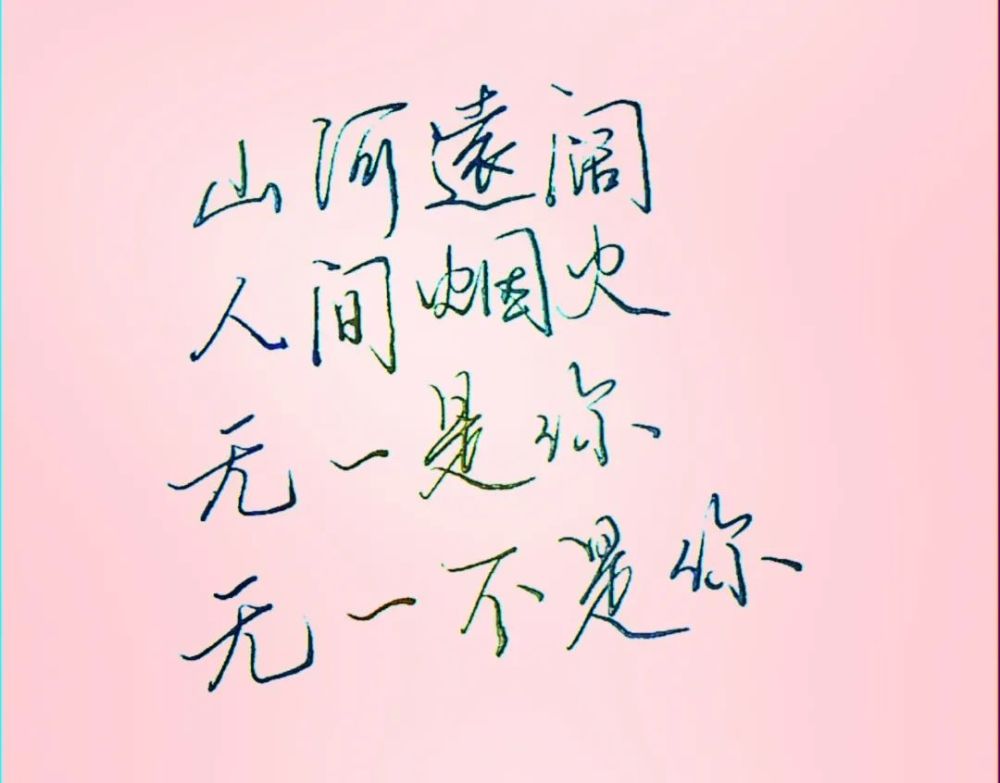 山河遠阔
人间烟火
无一是你
无一不是你